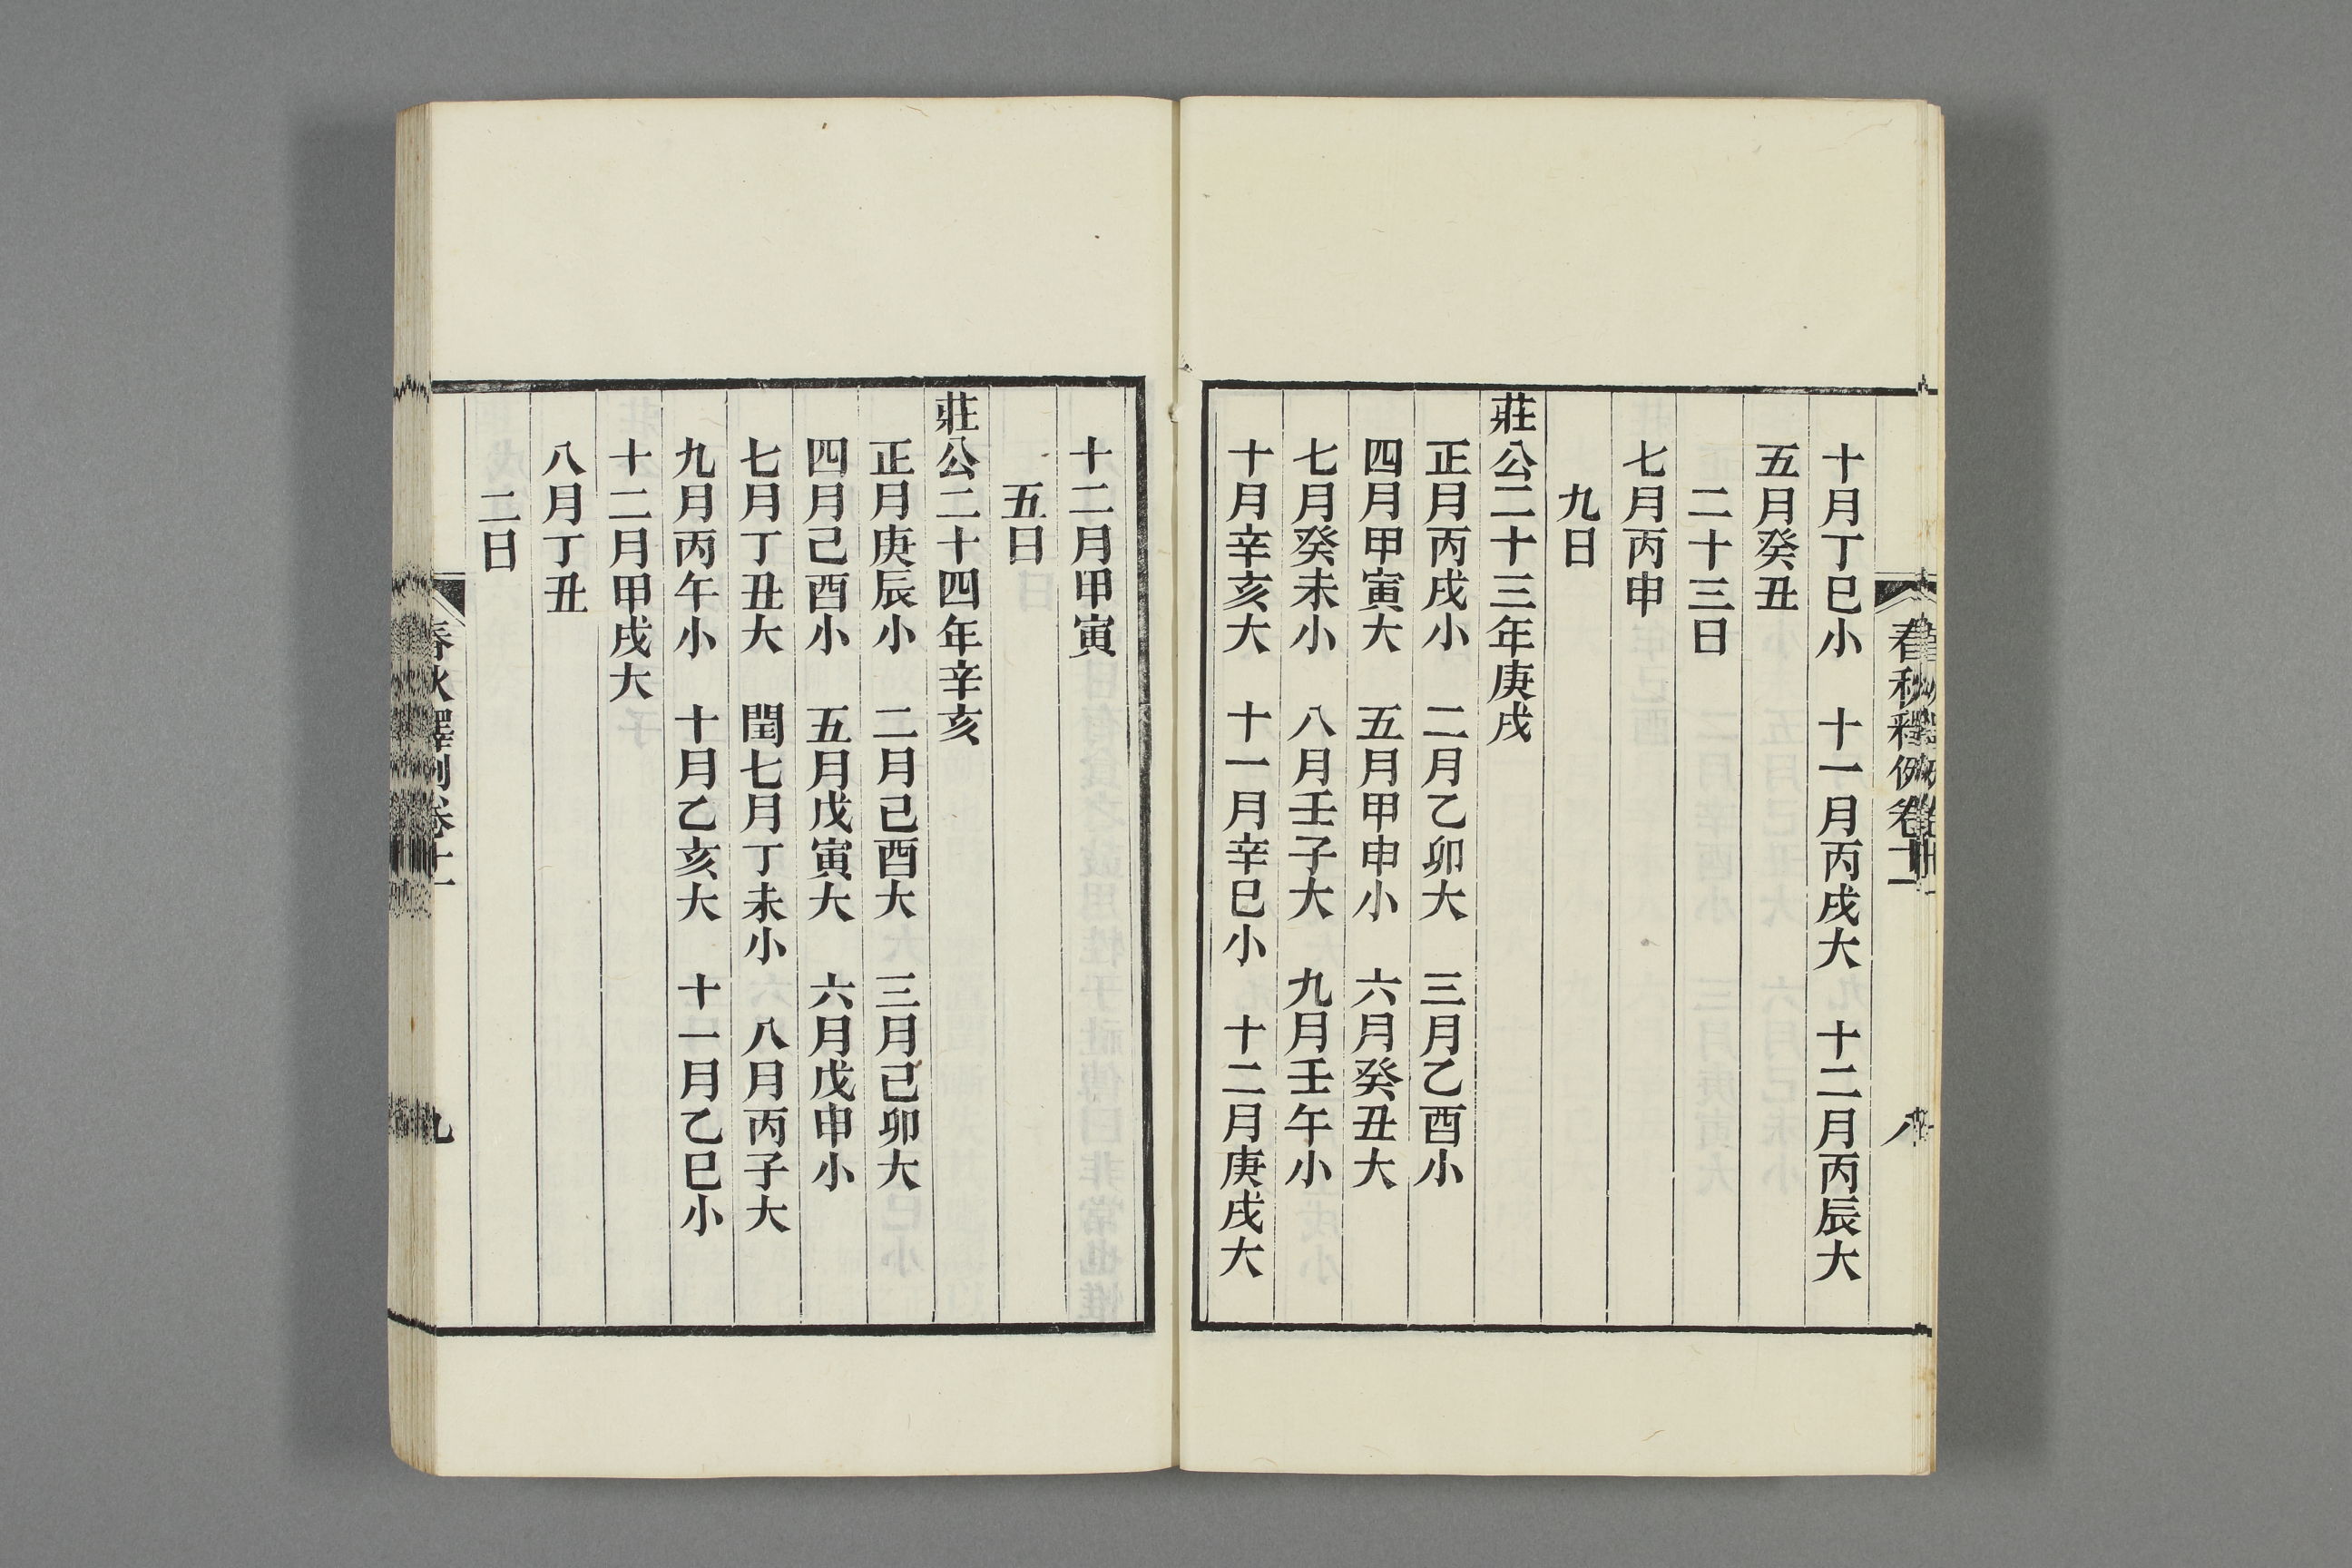 春秋釋例卷十一
八
十月丁巳小　十一月丙戌大　十二月丙辰大
五月癸丑
二十三日
七月丙申
九日
莊公二十三年庚戌
正月丙戌小　二月乙卯大　三月乙酉小
四月甲寅大　五月甲申小　六月癸丑大
七月癸未小　八月壬子大　九月壬午小
十月辛亥大　十一月辛巳小　十二月庚戌大
十二月甲寅
五日
莊公二十四年辛亥
正月庚辰小　二月己酉大　三月己卯大
四月己酉小　五月戊寅大　六月戊申小
七月丁丑大　閏七月丁未小　八月丙子大
九月丙午小　十月乙亥大　十一月乙巳小
十二月甲戌大
八月丁丑
二日
春秋釋例卷十一
九